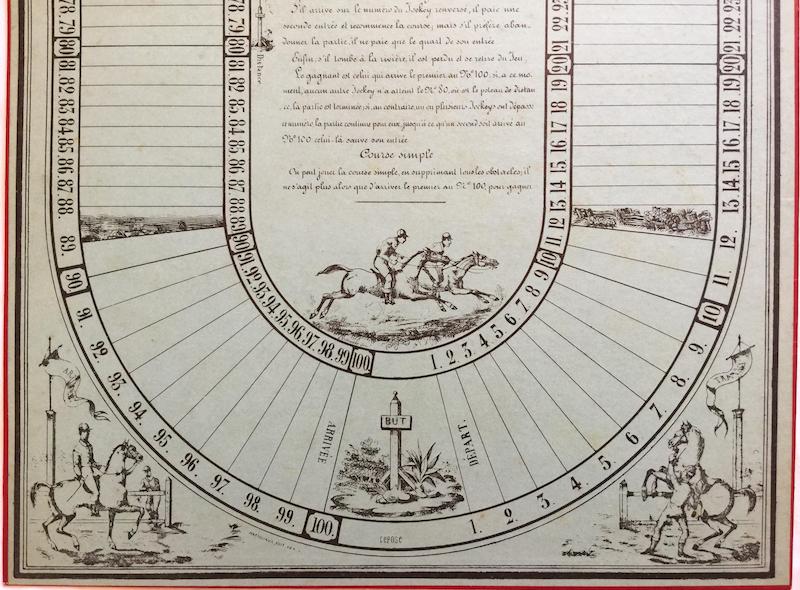 S'il arrive sur le numéro du Jockey renversé, il paie une
seconde entrée et recommence la course; mais s'il préfère aban-
donner la partie, il ne paie que le quart de son entrée
Enfin, s'il tombe à la rivière, il est perdu et se retire du Jeu.
Le gagnant est celui qui arrive le premier au Nº 100, si, à ce mo-
ment, aucun autre Jockey n'a atteint le Nº 80, où est le poteau de distan
ce, la partie est terminée; si, au contraire, un ou plusieurs Jockeys ont dépassé
ce numéro la partie continue pour eux, jusqu'à ce qu'un second soit arrivé au
Nº 100 celui-là sauve son entrée
Course simple
On peut jouer la course simple, en supprimant tous les obstacles; il
ne s'agit plus alors que d'arriver le premier au Nº 100, pour gagner
Distance
78. 79. 80 81. 82. 83. 84. 85. 86. 87. 88. 89. 90 91. 92. 93. 94. 95. 96. 97. 98. 99. 100.
78. 79. 80 81. 82. 83. 84. 85. 86. 87. 88. 89. 90 91. 92. 93. 94. 95. 96. 97. 98. 99. 100.
1. 2. 3. 4. 5. 6. 7. 8. 9. 10 11 12 13 14 15 16 17 18 19 20 21. 22. 23
1. 2. 3. 4. 5. 6. 7. 8. 9. 10 11. 12. 13. 14. 15 16. 17. 18. 19 20 21. 22. 23
ARRIVÉE
BUT
DÉPART.
déposé